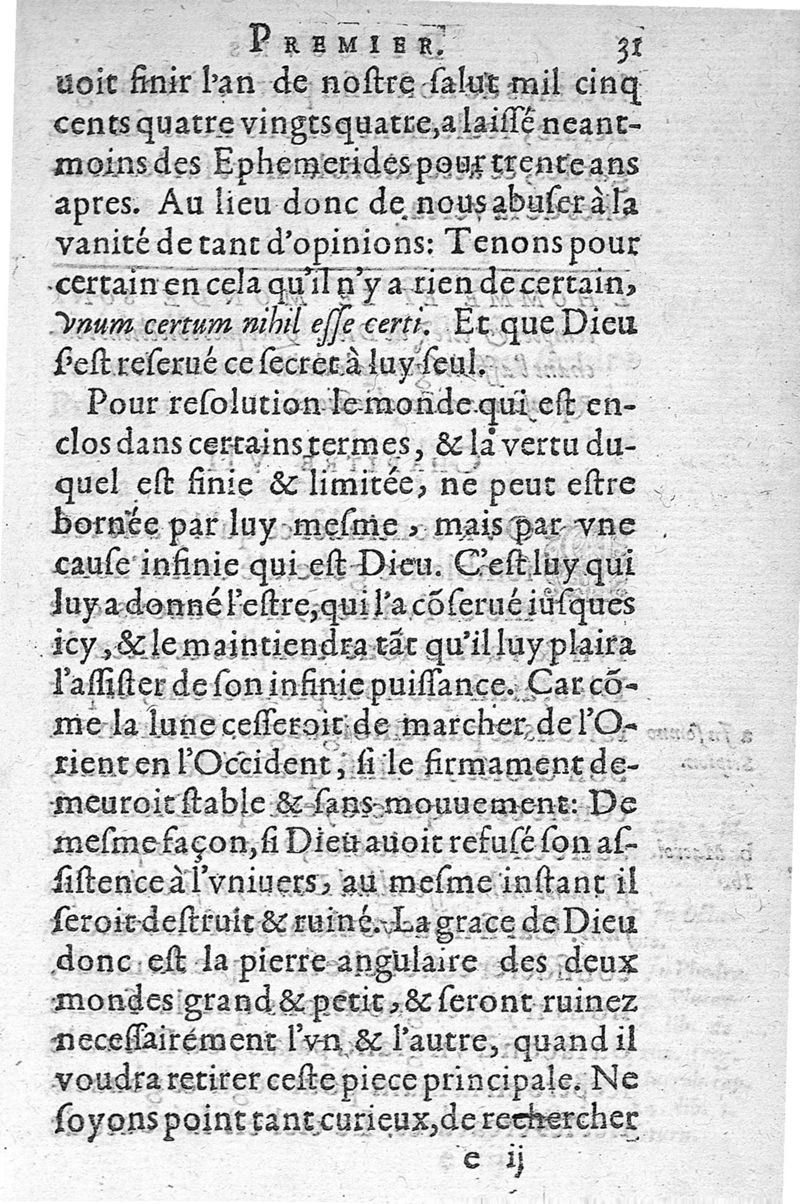 PREMIER. 31
uoit finir l'an de noſtre ſalut mil cinq
cents quatre vingts quatre, a laiſſé neant-
moins des Ephemerides pour trente ans
apres. Au lieu donc de nous abuſer à la
vanité de tant d'opinions: Tenons pour
certain en cela qu'il n'y a rien de certain,
Vnum certum nihil eſſe certi. Et que Dieu
ſ'eſt reſerué ce ſecret à luy ſeul.
Pour reſolution le monde qui eſt en-
clos dans certains termes, & la vertu du-
quel eſt finie & limitée, ne peut eſtre
bornée par luy meſme, mais par vne
cauſe infinie qui eſt Dieu. C'eſt luy qui
luy a donné l'eſtre, qui l'a cõſerué iuſques
icy, & le maintiendra tãt qu'il luy plaira
l'aſſiſter de ſon infinie puiſſance. Car cõ-
me la lune ceſſeroit de marcher de l'O-
rient en l'Occident, ſi le firmament de-
meuroit ſtable & ſans mouuement: De
meſme façon, ſi Dieu auoit refuſé ſon aſ-
ſiſtence à l'vniuers, au meſme inſtant il
ſeroit deſtruit & ruiné. La grace de Dieu
donc eſt la pierre angulaire des deux
mondes grand & petit, & ſeront ruinez
neceſſairément l'vn & l'autre, quand il
voudra retirer ceſte piece principale. Ne
ſoyons point tant curieux, de rechercher
e ij